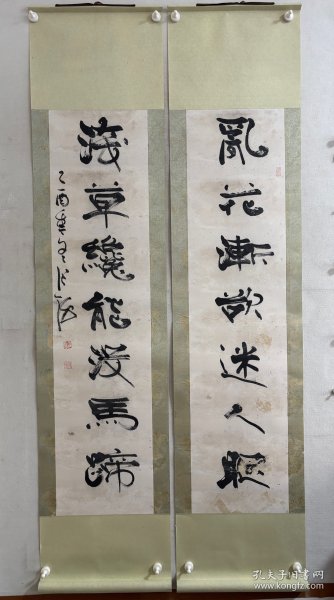 亂花漸欲迷人眼
淺草纔能沒馬蹄
乙酉年冬
孔夫子旧书网
www.kongfz.com